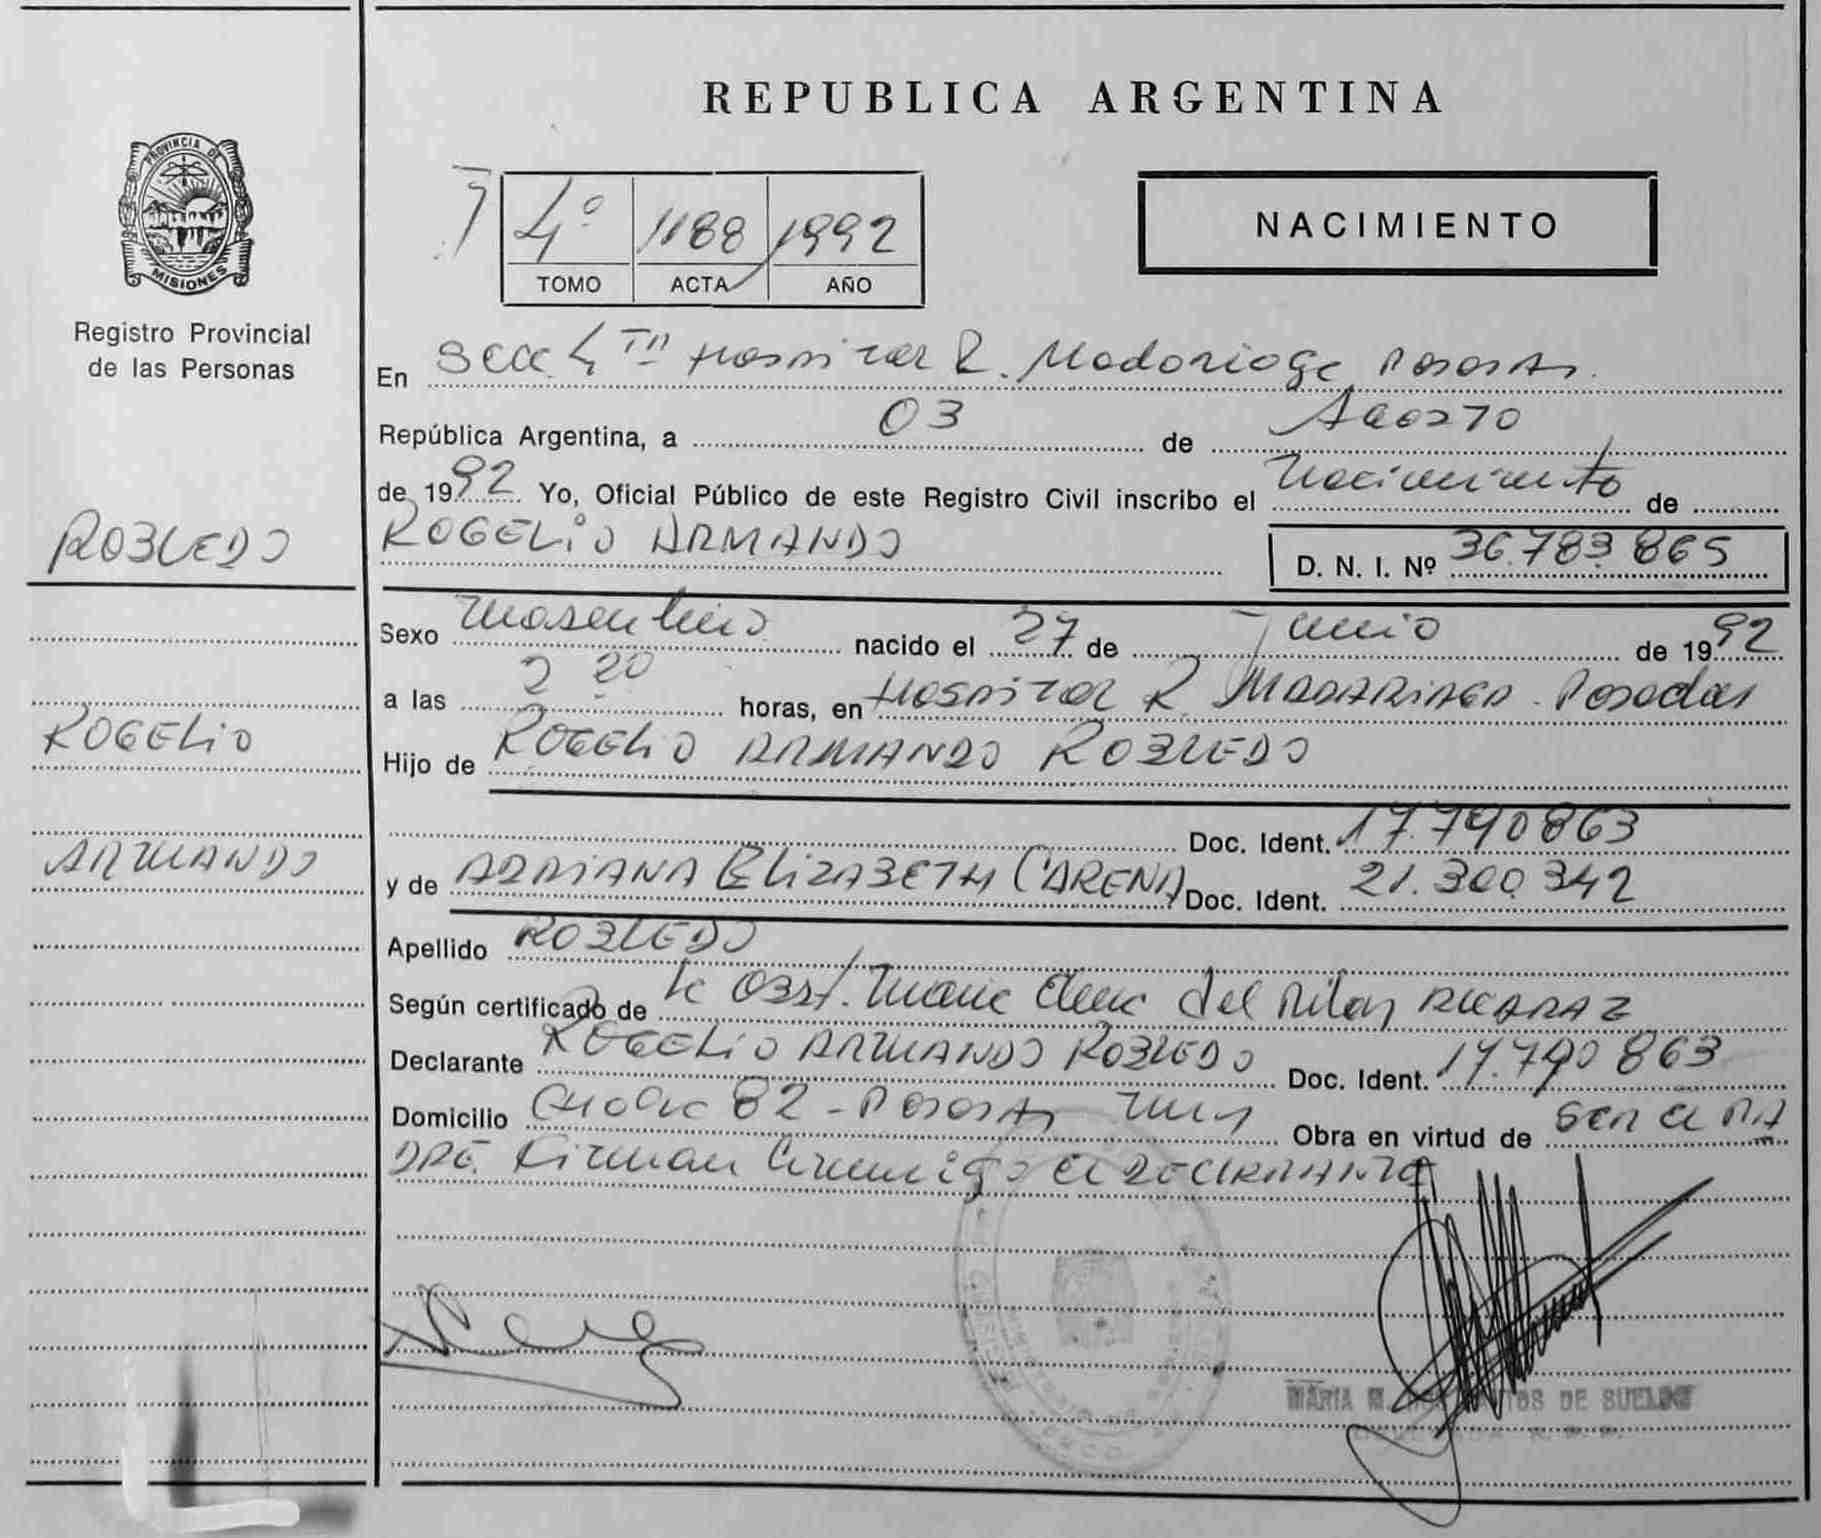 REPUBLICA ARGENTINA
PROVINCIA DE
MISIONES
Registro Provincial
de las Personas
4º 1188 1992
TOMO ACTA AÑO
NACIMIENTO
En Secc 4 Hospital R. Madariaga Posadas
República Argentina, a 03 de Agosto
de 1992 Yo, Oficial Público de este Registro Civil inscribo el nacimiento de
ROBLEDO
ROGELIO ARMANDO D. N. I. Nº 36.783.865
Sexo masculino nacido el 27 de Junio de 1992
a las 2 20 horas, en Hospital R. MADARIAGA - Posadas
ROGELIO
Hijo de ROGELIO ARMANDO ROBLEDO
Doc. Ident. 17.790863
ARMANDO
y de ADRIANA ELIZABETH CARENA Doc. Ident. 21.300.342
Apellido ROBLEDO
Según certificado de la OBST. Maria Elena del Pilar
Declarante ROGELIO ARMANDO ROBLEDO Doc. Ident. 17.790863
Domicilio 82 - POSADAS Obra en virtud de Ser el PA
DRE. Firman conmigo el DECLARANTE
MARIA DE SUELDO